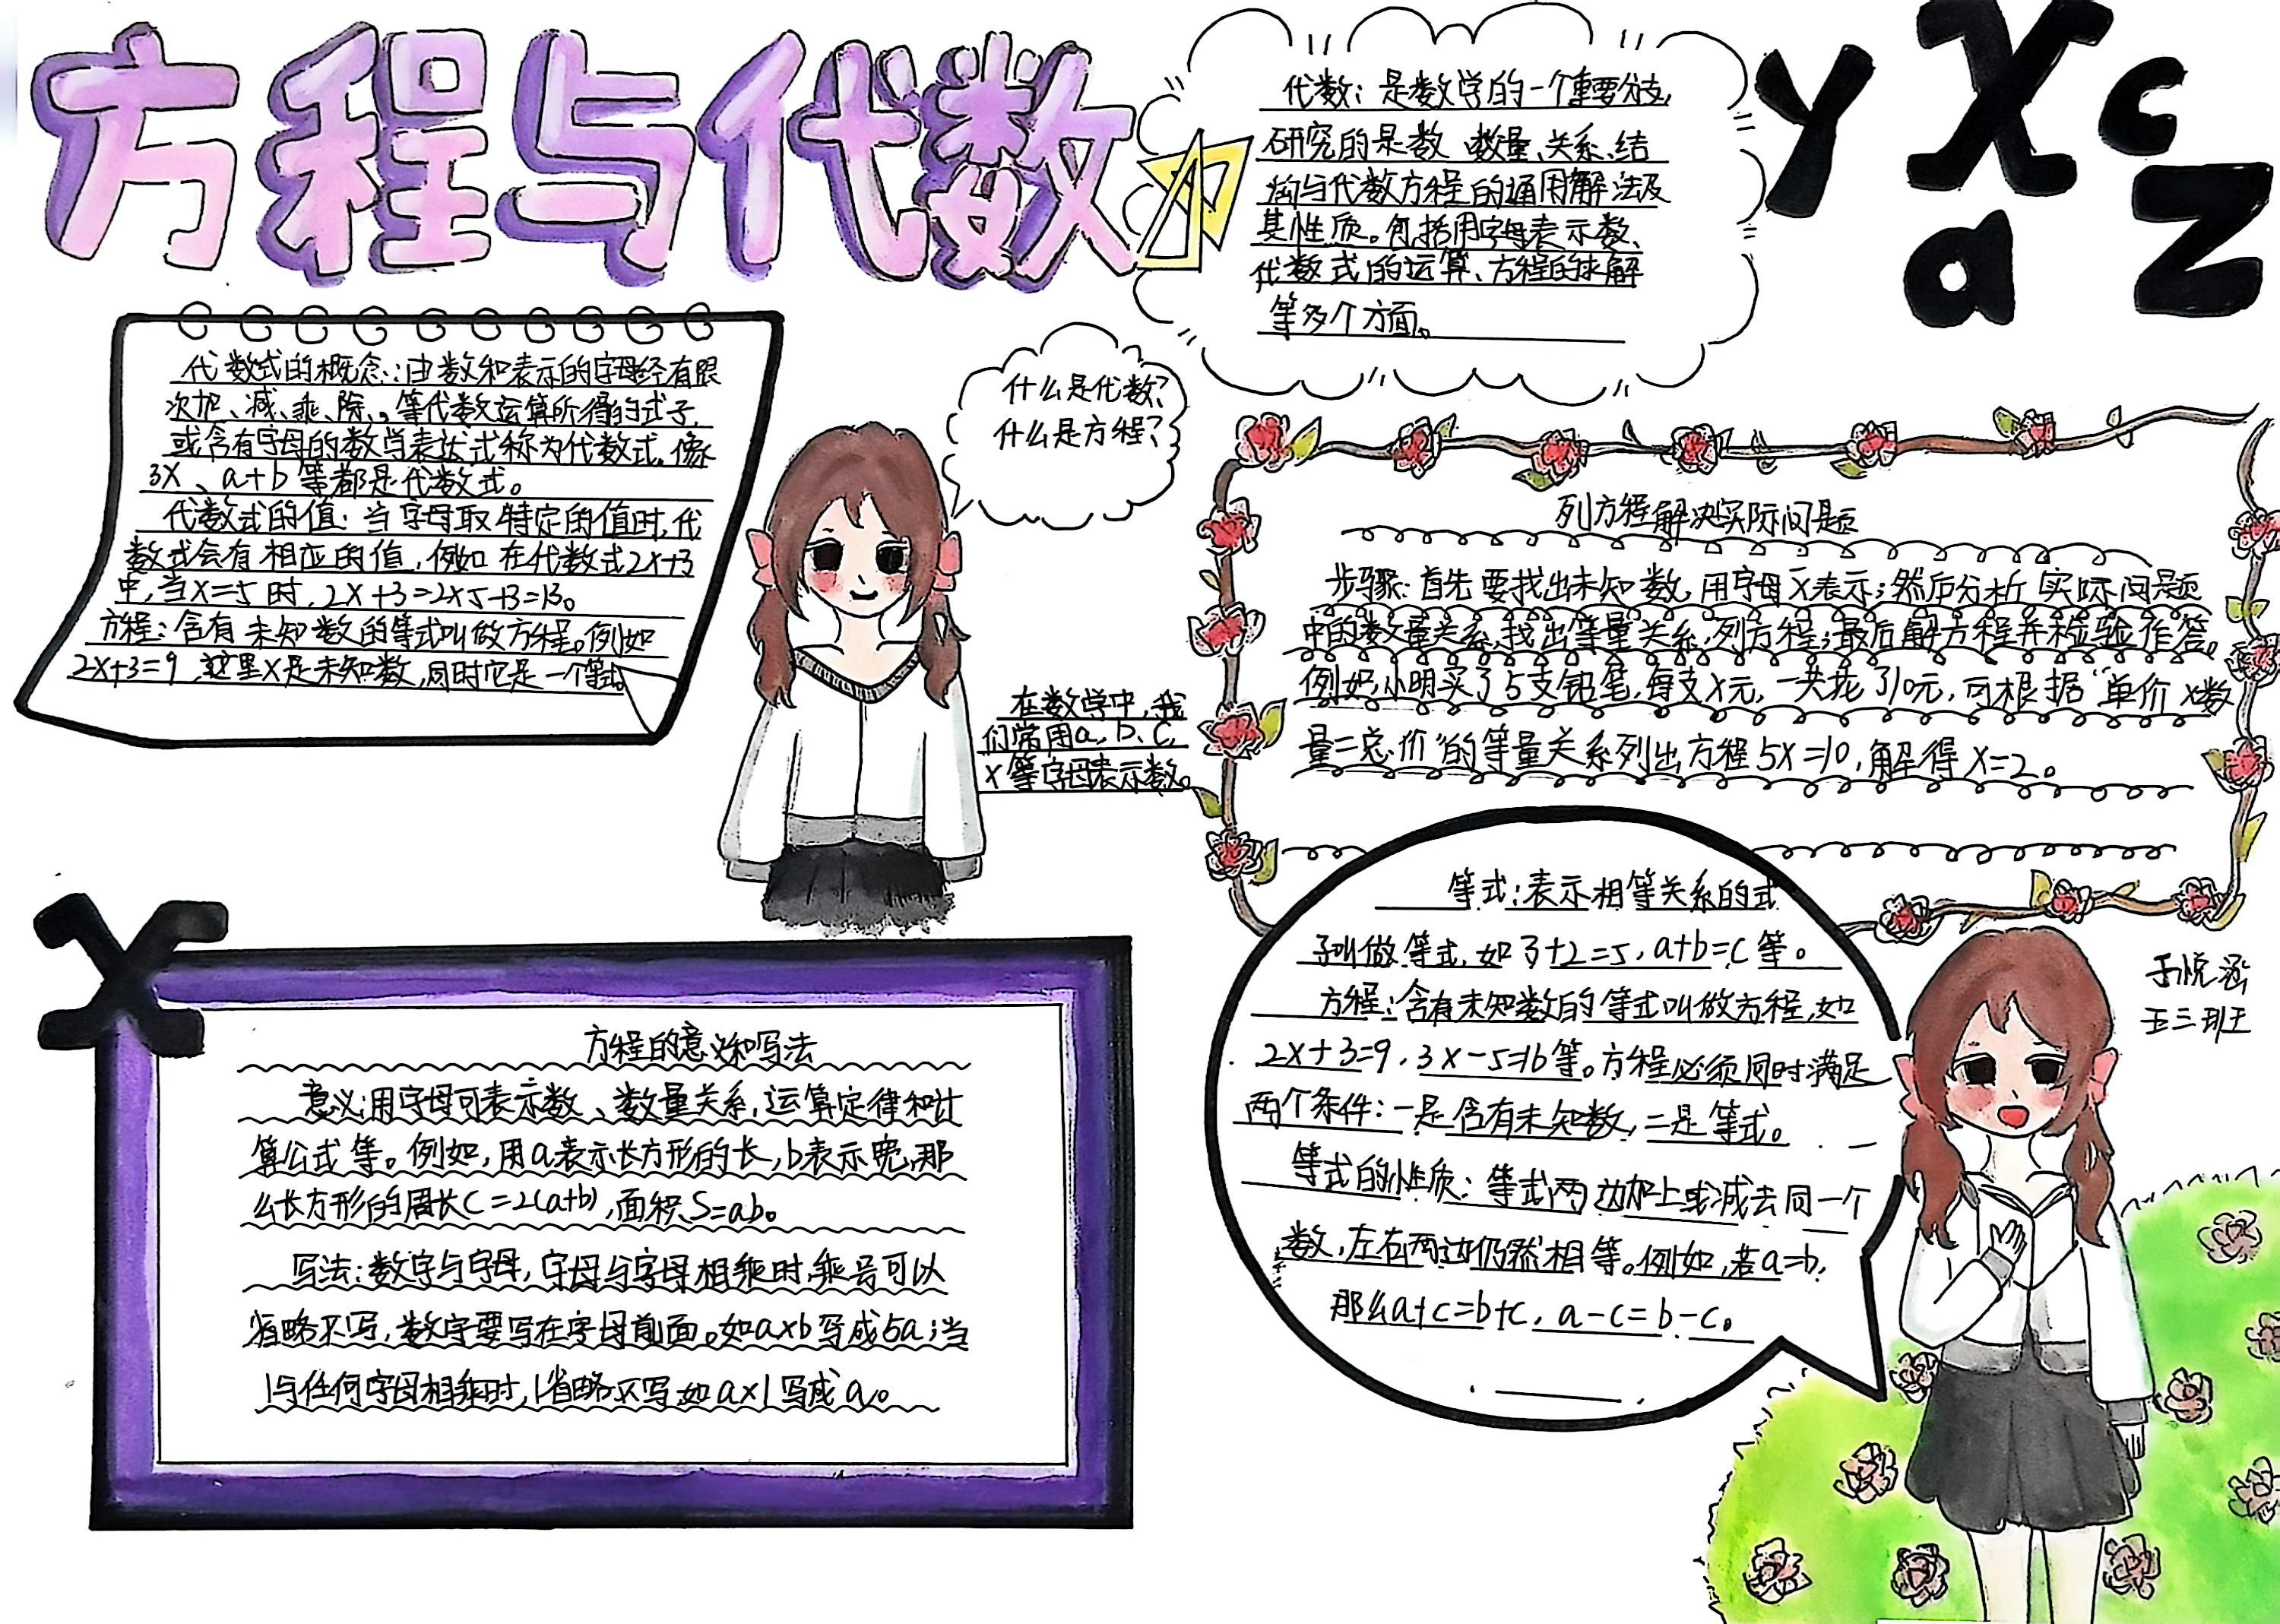 方程与代数
代数：是数学的一个重要分支，
研究的是数、数量、关系、结
构与代数方程的通用解法及
其性质。包括用字母表示数、
代数式的运算、方程的求解
等多个方面。
y X c
a z
代数式的概念：由数和表示的字母经有限
次加、减、乘、除。等代数运算所得的式子，
或含有字母的数学表达式称为代数式。像
3X、a+b等都是代数式。
代数式的值：当字母取特定的值时，代
数式会有相应的值，例如在代数式2x+3
中，当x=5时，2x+3=2×5+3=13。
方程：含有未知数的等式叫做方程。例如
2x+3=9，这里x是未知数，同时它是一个等式。
什么是代数？
什么是方程？
在数学中，我
们常用a、b、c，
x等字母表示数。
列方程解决实际问题
步骤：首先要找出未知数，用字母x表示；然后分析实际问题
中的数量关系，找出等量关系，列方程；最后解方程并检验作答。
例如，小明买了5支铅笔，每支x元，一共花了10元，可根据“单价×数
量=总价”的等量关系列出方程5x=10，解得x=2。
X
方程的意义和写法
意义：用字母可表示数、数量关系，运算定律和计
算公式等。例如，用a表示长方形的长，b表示宽，那
么长方形的周长C=2(a+b)，面积S=ab。
写法：数字与字母，字母与字母相乘时，乘号可以
省略不写，数字要写在字母前面。如a×b写成5a；当
1与任何字母相乘时，1省略不写，如a×1写成a。
等式：表示相等关系的式
子叫做等式，如3+2=5，a+b=c等。
方程：含有未知数的等式叫做方程，如
2x+3=9，3x-5=16等。方程必须同时满足
两个条件：一是含有未知数，二是等式。
等式的性质：等式两边加上或减去同一个
数，左右两边仍然相等。例如，若a=b，
那么a+c=b+c，a-c=b-c。
于悦涵
五三班